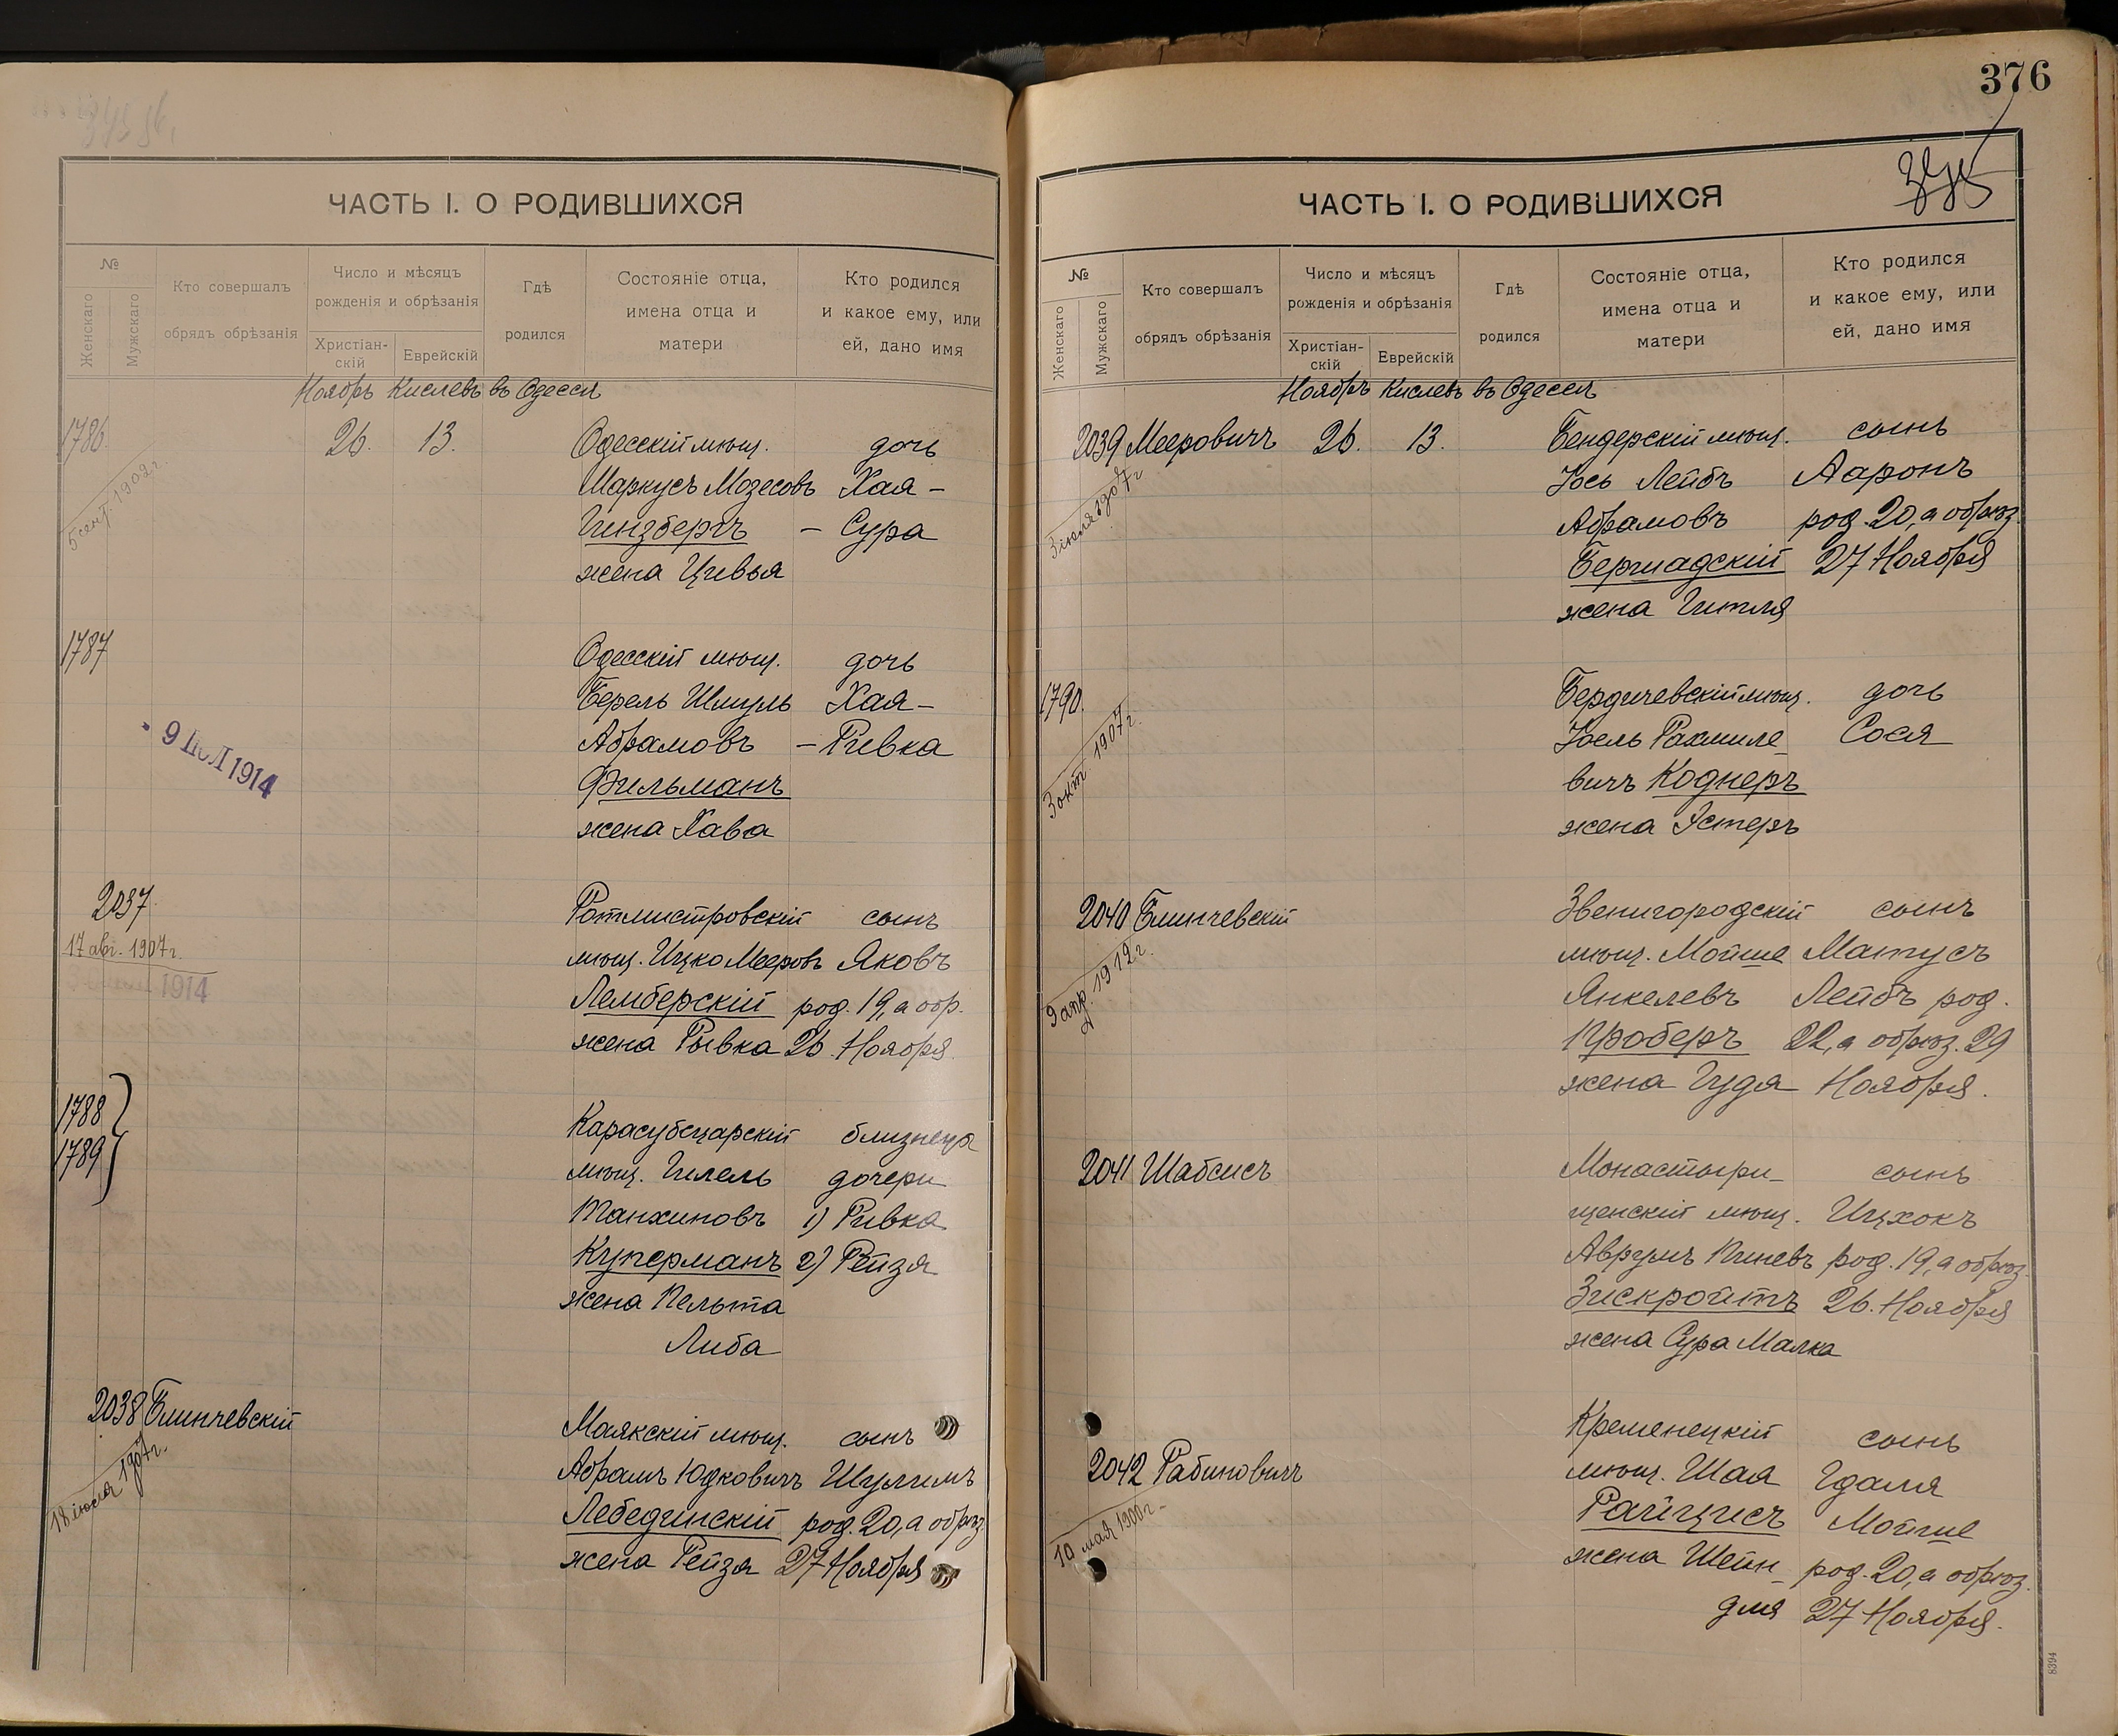 376
ЧАСТЬ I. О РОДИВШИХСЯ
№
Женскаго
Мужскаго
Кто совершалъ
обрядъ обрѣзанія
Число и мѣсяцъ
рожденія и обрѣзанія
Христіан-
скій
Еврейскій
Гдѣ
родился
Состояніе отца,
имена отца и
матери
Кто родился
и какое ему, или
ей, дано имя
Ноябрь Кислевъ въ Одессѣ
1786 26. 13. Одесскій мѣщ. дочь
5 сент. 1902 г.
Маркусъ Мозесовъ Хая -
Гинзбергъ - Сура
жена Цивья
1787 Одесскій мѣщ. дочь
Берель Шмуль Хая -
Абрамовъ - Ривка
Фильманъ
9 1914
жена Хава
2037 Ротмистровскій сынъ
17 авг. 1907 г.
мѣщ. Ицко Мееровъ Яковъ
1914
Лемберскій род. 19, а обр.
жена Рывка 26 Ноября.
1788
1789
Карасубазарскій близнецы
мѣщ. Гилель дочери
Танхиновъ 1) Ривка
Куперманъ 2) Рейзя
жена Песьта
Либа
2038 Блинчевскій Маякскій мѣщ. сынъ
18 іюля 1907 г.
Абрамъ Юдковичъ Шулимъ
Лебединскій род. 20, а обрѣз.
жена Рейза 27 Ноября
ЧАСТЬ I. О РОДИВШИХСЯ
№
Женскаго
Мужскаго
Кто совершалъ
обрядъ обрѣзанія
Число и мѣсяцъ
рожденія и обрѣзанія
Христіан-
скій
Еврейскій
Гдѣ
родился
Состояніе отца,
имена отца и
матери
Кто родился
и какое ему, или
ей, дано имя
Ноябрь Кислевъ въ Одессѣ
2039 Мееровичъ 26. 13. Бендерскій мѣщ. сынъ
Іось Лейбъ Ааронъ
Абрамовъ род. 20, а обрѣз.
Бершадскій 27 Ноября
жена Гитля
1790. Бердичевскій мѣщ. дочь
3 окт. 1907 г.
Іоель Рахмиле- Сося
вичъ Коднеръ
жена Эстеръ
2040 Блинчевскій Звенигородскій сынъ
9 апр. 1912 г.
мѣщ. Мойше Матусъ
Янкелевъ Лейбъ род.
Проберъ 22, а обрѣз. 29
жена Гудя Ноября.
2041 Шабсисъ Монастыри- сынъ
щенскій мѣщ. Ицхокъ
Аврумъ Пиневъ род. 19, а обрѣз.
Зискройтъ 26. Ноября
жена Сура Малка
2042 Рабиновичъ Кременецкій сынъ
10 мая 1900 г.
мѣщ. Шая Гдаля
Райцисъ Мойше
жена Шейн- род. 20, а обрѣз.
для 27 Ноября.
8394